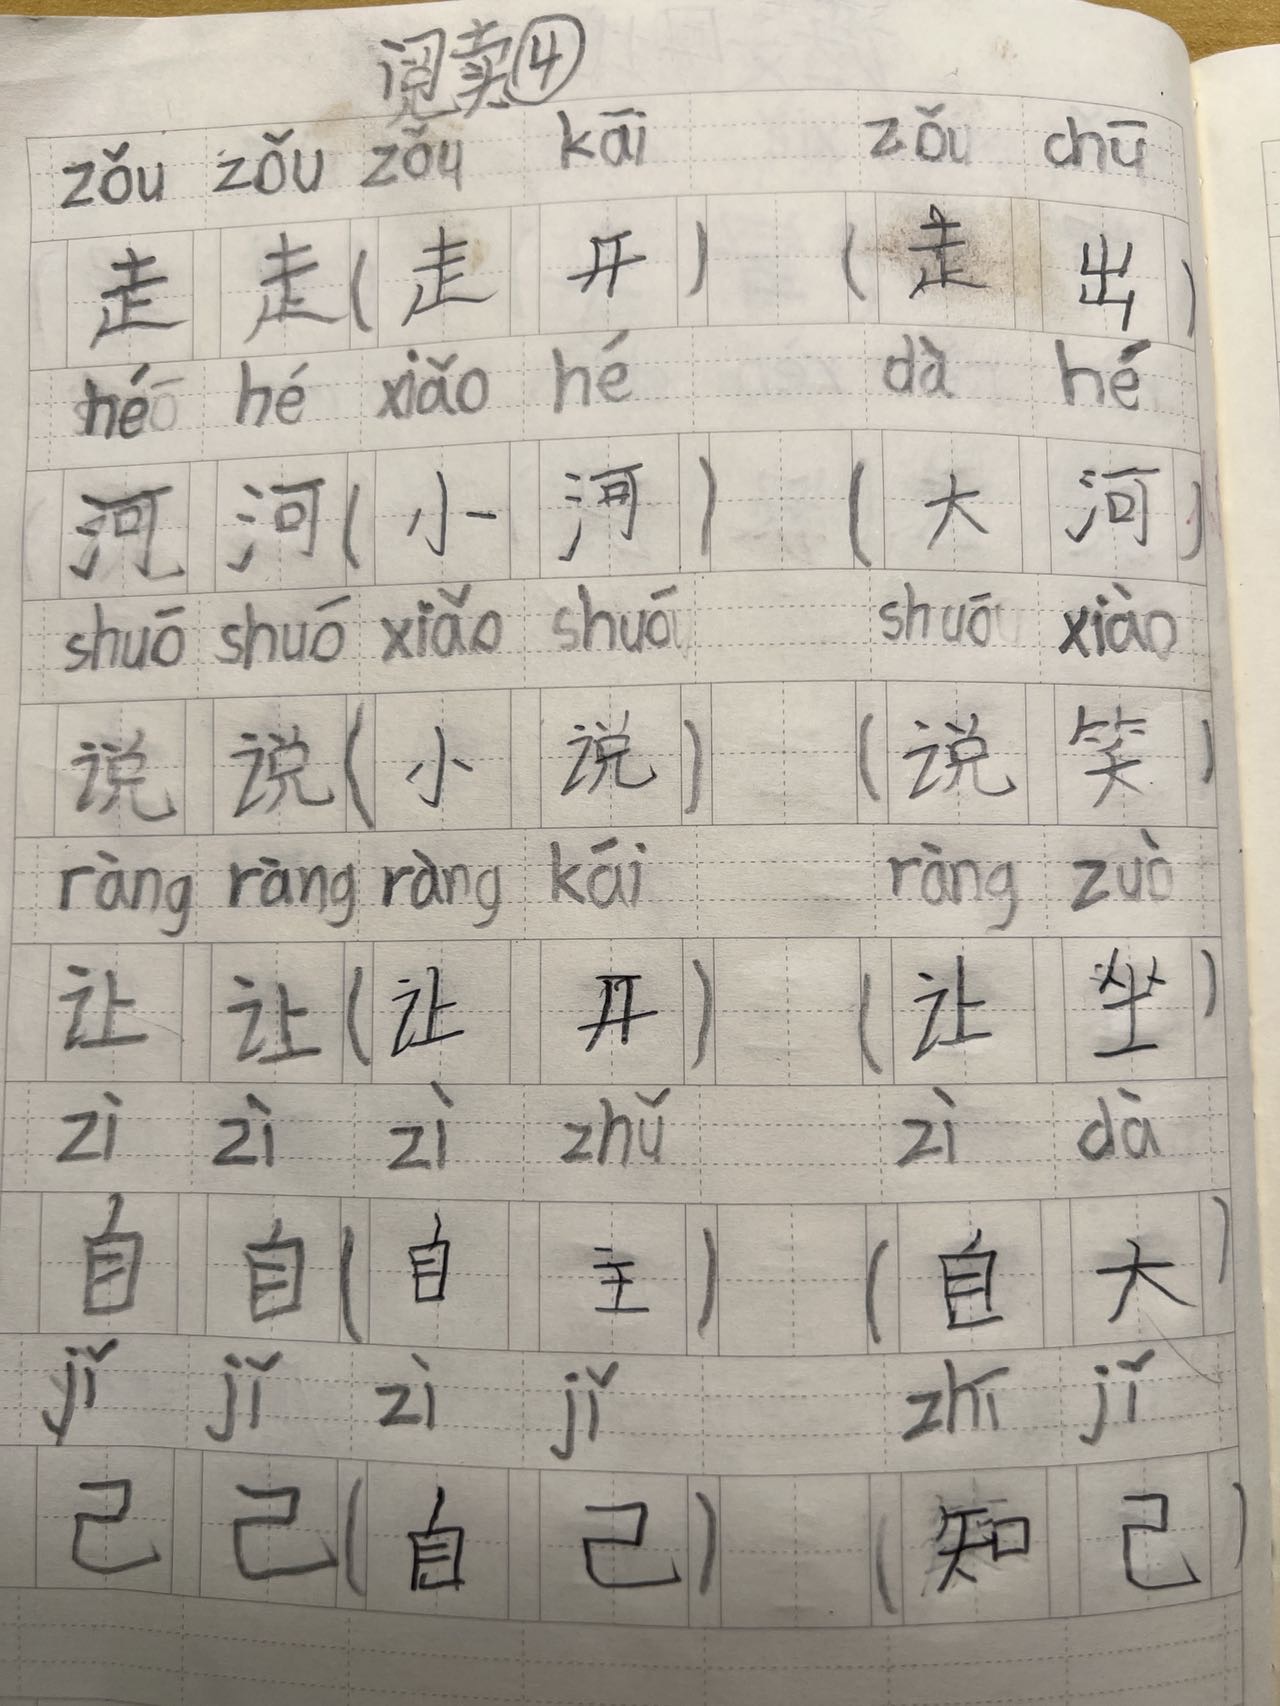 阅卖④
zǒu zǒu zǒu kāi zǒu chū
走 走 ( 走 开 ) ( 走 出 )
hé hé xiǎo hé dà hé
河 河 ( 小 河 ) ( 大 河 )
shuō shuō xiǎo shuō shuō xiào
说 说 ( 小 说 ) ( 说 笑 )
ràng ràng ràng kāi ràng zuò
让 让 ( 让 开 ) ( 让 坐 )
zì zì zì zhǔ zì dà
自 自 ( 自 主 ) ( 自 大 )
jǐ jǐ zì jǐ zhī jǐ
己 己 ( 自 己 ) ( 知 己 )